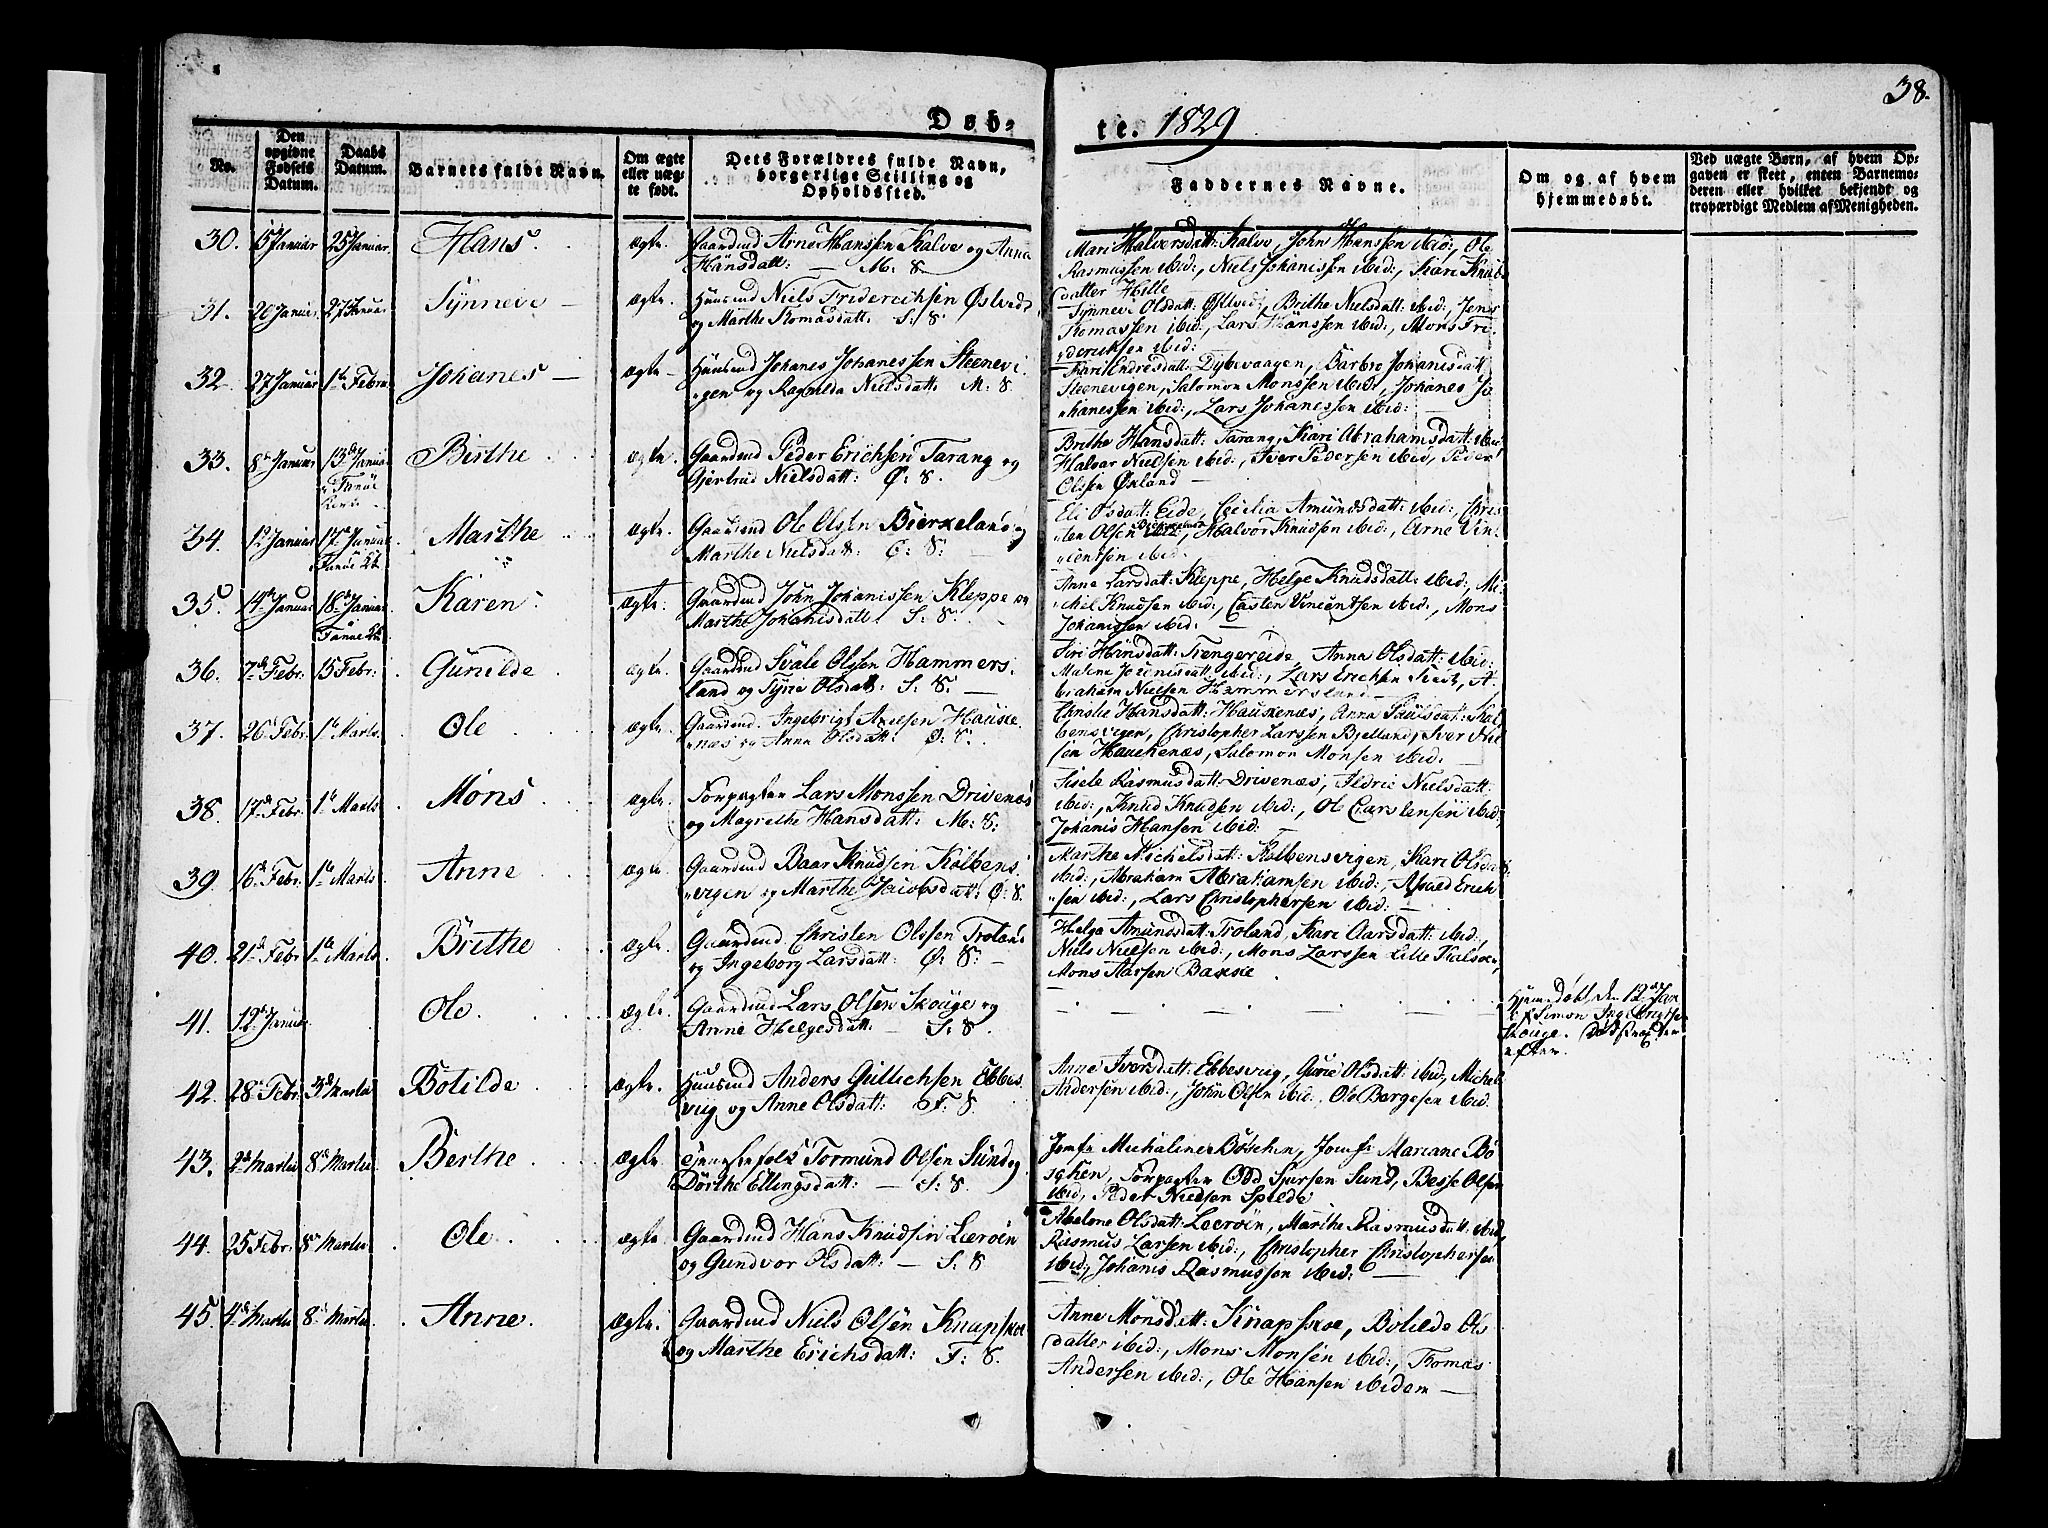 38.
Døb-
te. 1829
No.
Den
opgivne
Fødsels
Datum.
Daabs
Datum.
Barnets fulde Navn.
Om ægte
eller uæg-
te født.
Dets Forældres fulde Navn,
borgerlige Stilling og
Opholdssted.
Faddernes Navne.
Om og af hvem
hjemmedøbt.
Ved uægte Børn, af hvem Op-
gaven er skeet, enten Barnemo-
deren eller hvilket bekjendt og
troværdigt Medlem af Menigheden.
30. 15 Januar 25 Januar. Hans. ægte.
Gaardmd Arne Hanssen Kalve og Anna
Hansdatt: — M: S.
Mari Halversdatt: Kalve, John Hanssen ibid:, Ole
Rasmussen ibid:, Niels Johanissen ibid:, Kari
datter Hille
31. 20 Januar 27 Januar Synneve — ægte.
Huusmd Niels Frideriksen Østvedt
og Marthe Tomasdatt: S: S.
Synneve Olsdatt: Østved, Brithe Nielsdatt: ibid:, Jens
Tomassen ibid:, Lars Hanssen ibid:, Mons Fri-
deriksen ibid:
32. 27 Januar 1ste Febru. Johanes — ægte —
Huusmd Johanes Johanessen Steenevi
gen og Ragnilda Nielsdatt: M: S
Kari Endresdatt: Dybevaagen, Barbro Johanisdatt
Steenevigen, Salomon Monssen ibid:, Johanes Jo
hanessen ibid:, Lars Johanessen ibid: —
33. 8de Januar 13de Januar Fanøe Kirke. Birthe ægte.
Gaardmd Peder Erichsen Tarang og
Gjertrud Nielsdatt: Ø: S.
Brithe Hansdatt: Tarang, Kari Abrahamsdatt: ibid
Halvar Nielsen ibid:, Iver Pedersen ibid, Peder
Olssen Øxland —
34. 12 Januar 17de Januar Marthe ægte.
Gaardmd Ole Olsen Bierkeland og
Marthe Nielsdatt: Ø: S: —
Eli Osdatt: Eide, Cecilia Amundsdatt: ibid:, Chris
ten Olsen, Halvor Knudsen ibid:, Arne Vin-
centsen ibid:
35. 14de Januar 18de Januar Karen. ægte.
Gaardmd John Johanissen Kleppe og
Marthe Johanisdatt. S: S.
Anne Larsdatt: Kleppe, Helge Knudsdatt: ibid:, Mi-
chel Knudsen ibid:, Casten Vincentsen ibid:, Mons
Johanissen ibid: —
36. 7de Febr. 15 Febr: Gunilde ægte.
Gaardmd Svale Olssen Hammers-
land og Syrie Olsdatt: S: S. —
Siri Hansdatt: Trengereide, Anna Olsdatt: ibid:
ibid:, Lars Ericksen, A-
braham Nielsen Hammersland —
37. 26 Febr. 1te Marts. Ole ægte.
Gaardmd. Ingebrigt Axelsen Hauke-
næs og Anna Olsdatt: Ø: S.
Christie Hansdatt: Haukenæs, Anna Paulsdatt: Kol
bensvigen, Christopher Larssen Bjelland, Iver
sen Haukenæs, Salomon Monsen ibid:
38. 17de Febr. 1te Marts. Mons ægte.
Forpagter Lars Monssen Drivenæs
og Magrethe Hansdatt: M: S:
Sisele Rasmusdatt: Drivenæs, Sidrie Nielsdatt:
ibid:, Knud Knudsen ibid:, Ole Carstensen ibid:,
Johanis Hansen ibid: —
39. 16de Febr. 1te Marts Anne ægte.
Gaardmd Baar Knudsen Kolbens
vigen og Marthe Jacobsdatt: Ø: S.
Marthe Michelsdatt: Kolbensvigen, Kari Olsdatt:
ibid:, Abraham Abrahamsen ibid:, Asvald Erich
sen ibid:, Lars Christophersen ibid: —
40. 21de Febr 1te Marts. Brithe ægte.
Gaardmd Christen Olssen Troland
og Ingeborg Larsdatt: Ø: S: —
Helga Amundsdatt: Troland, Kari Aarsdatt: ibid:,
Niels Nielsen ibid:, Mons Larssen Lille Kalsøen,
Mons Aarsen Bakke
41. 12te Januar Ole. ægte.
Gaardmd Lars Olsen Skouge og
Anne Helgesdatt: — S: S.
Hjemdøbt den 12te Jan
af Simon Ingebrigtsen
Skouge. Død strax der
efter.
42. 28de Febr. 3de Martii Botilde ægte.
Huusmd Anders Gullichsen Ebbes
viig og Anne Olsdatt: F: S
Anne Iversdatt: Ebbesvig, Gurie Olsdatt: ibid, Michel
Andersen ibid:, John Olsen ibid:, Ole Børgesen ibid:
43. 2de Martii 8de Martii Berthe ægte.
Tjenestefolk Tormund Olsen Sund og
Dorthe Ellingsdatt: — S: S.
Jomfr Michaline Bøschen, Jomfr Mariane Bø
schen, Forpagter Odd Sjursen Sund, Besse Olsen
ibid, Peder Nielsen Spilde
44. 25 Febr. 8de Martii. Ole. ægte.
Gaardmd Hans Knudsen Lerøen
og Gundvor Olsdatt: — S: S
Abelone Olsdatt: Leerøen, Marthe Rasmusdatt: ibid,
Rasmus Larsen ibid:, Christopher Christophersen
ibid, Johanis Rasmussen ibid: —
45. 4de Martii 8de Martii. Anne. ægte.
Gaardmd Niels Olsen Knapskoe
og Marthe Erichsdatt: F: S.
Anne Monsdatt: Knapskoe, Botilde Ols
datter ibid:, Mons Monsen ibid:, Thomas
Andersen ibid:, Ole Hansen ibidem —